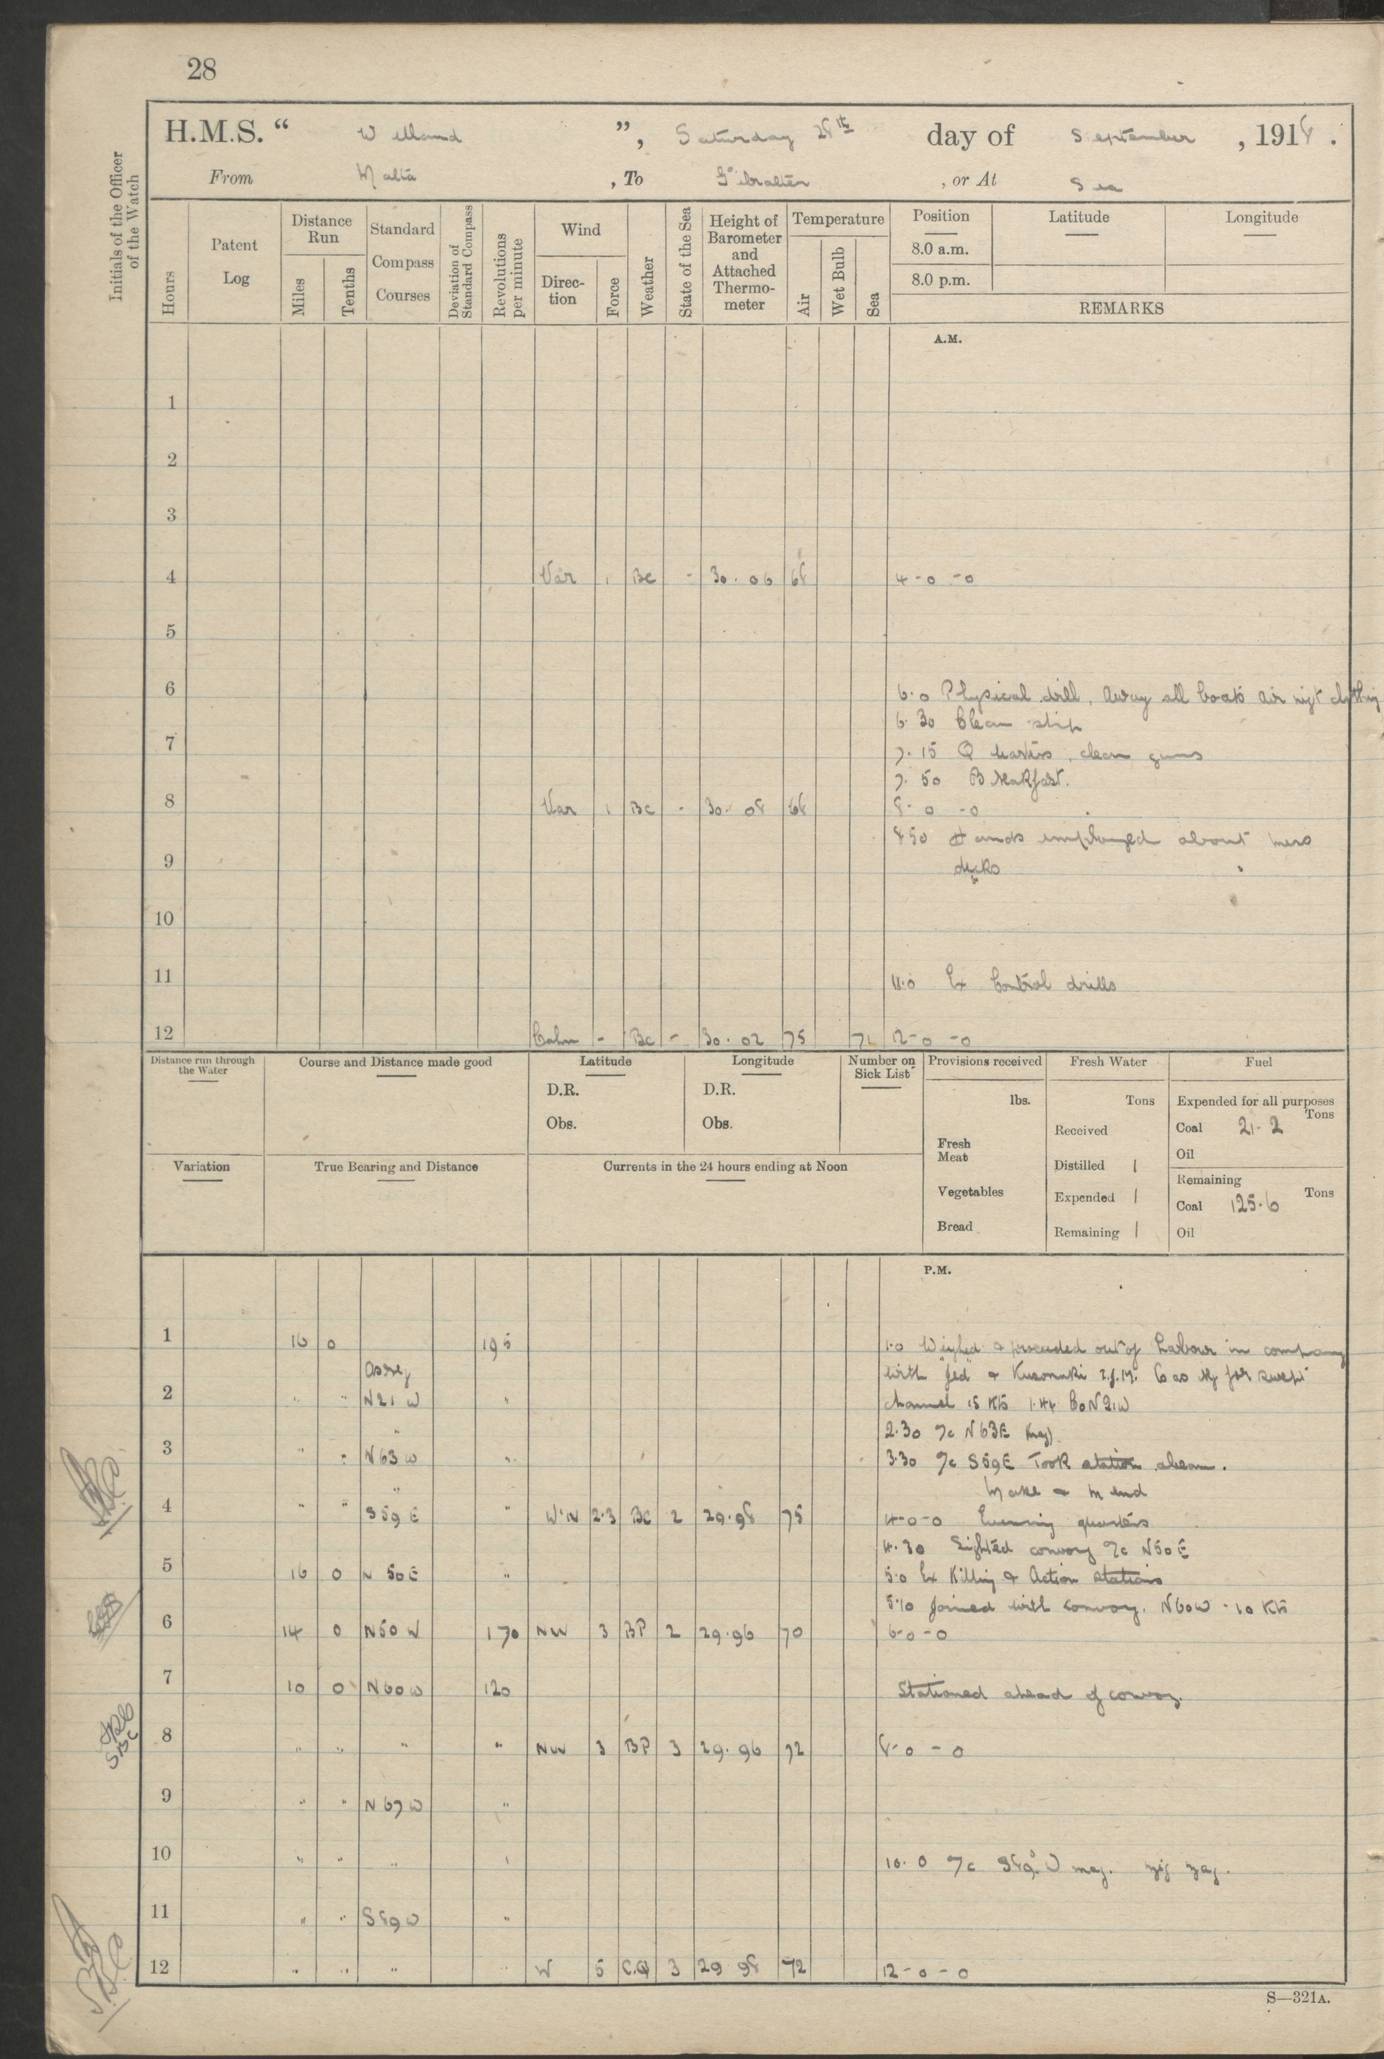 28
H.M.S. “ Welland ”, Saturday 28th day of September, 1918.
From Malta, To Gibralter, or At Sea
Initials of the Officer of the Watch
Hours
Patent Log
Distance Run
Miles
Tenths
Standard Compass Courses
Deviation of Standard Compass
Revolutions per minute
Wind
Direction
Force
Weather
State of the Sea
Height of Barometer and Attached Thermometer
Temperature
Air
Wet Bulb
Sea
Position
Latitude
Longitude
8.0 a.m.
8.0 p.m.
REMARKS
A.M.
1
2
3
4 Var 1 BC - 30.06 68 4-0-0
5
6 6.0 Physical drill, Away all boats air nigt clothing
6.30 Clean ship
7 7.15 Quarters, clean guns
7.50 Breakfast.
8 Var 1 BC - 30.08 68 8-0-0
8.50 Hands employed about mess
9 decks
10
11 11.0 Ex Control drills
12 Calm - BC - 30.02 75 12-0-0
Distance run through the Water
Course and Distance made good
Latitude
D.R.
Obs.
Longitude
D.R.
Obs.
Number on Sick List
Provisions received
lbs.
Fresh Meat
Vegetables
Bread
Fresh Water
Tons
Received
Distilled
Expended
Remaining
Fuel
Expended for all purposes
Tons
Coal 21.2
Oil
Remaining
Tons
Coal 125.6
Oil
Variation
True Bearing and Distance
Currents in the 24 hours ending at Noon
P.M.
1 16 0 195 1.0 Weighed & proceeded out of harbour in company
with "Jed" & Kusonoki I.J.M. Co as rq for swept
2 " " N21W " channel 15 Kts 1.44 Co N21W
2.30 %c N63E (mag)
3 " " N63W " 3.30 %c S59E Took station abeam.
Make & Mend
4 " " S59E " W'N 2.3 BC 2 29.98 75 4-0-0 Evening quarters
4.30 Sighted convoy %c N50E
5 16 0 N 50E " 5.0 Ex Killing & Action Stations
5.10 Joined with convoy. N60W - 10 Kts
6 14 0 N50W 170 NW 3 BP 2 29.96 70 6-0-0
7 10 0 N60W 120 Stationed ahead of convoy.
8 " " " " NW 3 BP 3 29.96 72 8-0-0
9 " " N67W "
10 " " " " 10.0 %c S89°W mag. zig zag.
11 " " S89W "
12 " " " W 5 C.Q 3 29 98 72 12-0-0
S—321A.